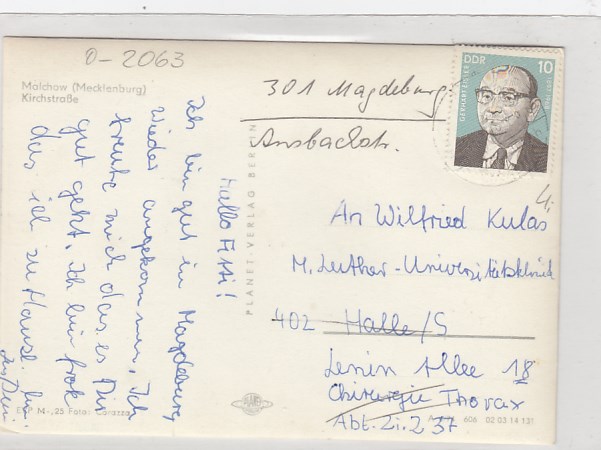 0-2063
Malchow (Mecklenburg)
Kirchstraße
Hallo Atti!
Ich bin gut in Magdeburg
wieder angekommen. Ich
freute mich das es Dir
gut geht. Ich bin froh
das ich zu Hause bin.
PLANET VERLAG BERLIN
DDR 10
GERHART ZILLER
301 Magdeburg
Ansbachstr.
An Wilfried Kulas
M. Luther-Universitätsklinik
402 Halle/S
Lenin Allee 18
Chirurgie Thorax
Abt. Zi. 237
EVP M -,25 Foto:
606 02 03 14 131